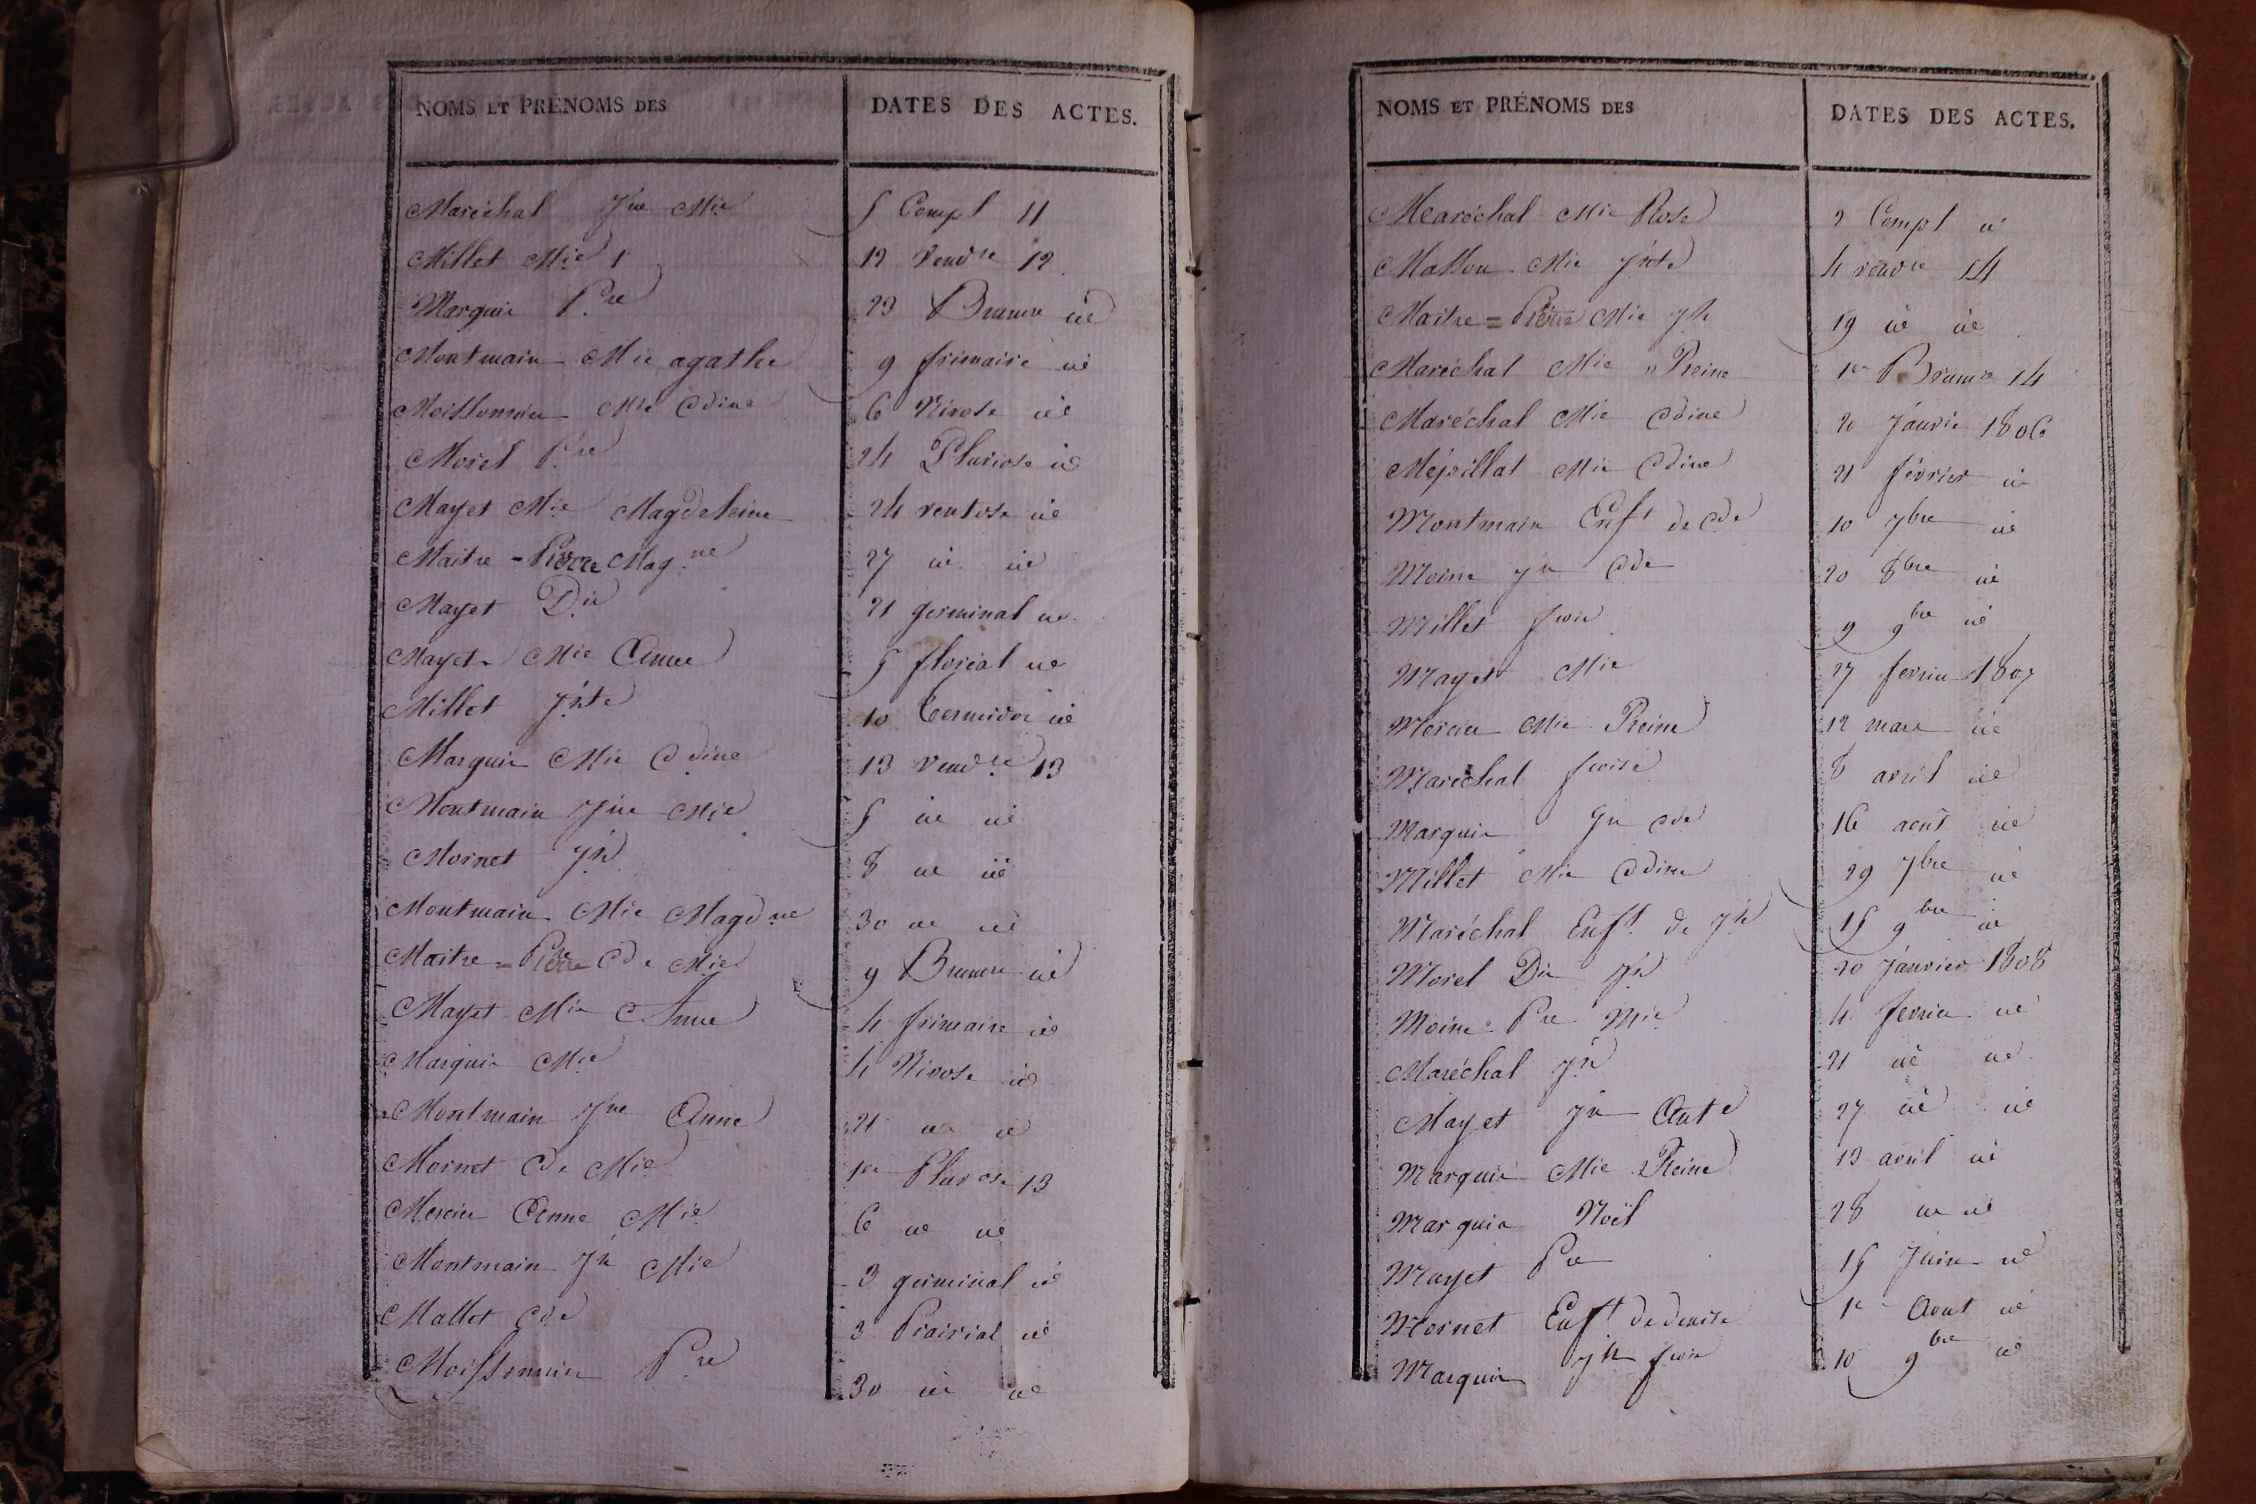 NOMS ET PRÉNOMS DES DATES DES ACTES.
Maréchal Jne Mie 5 Compl 11
Millet Mie 12 Vendre 12
Marguin Pre 23 Brumre id
Montmain Mie agathe 9 frimaire id
Moissonnier Mie Cdine 6 Nivose id
Morel Pre 24 Pluviose id
Mayet Mie Magdeleine 24 ventose id
Maitre = Pierre Mag.ne 27 id id
Mayet Dis 21 germinal id
Mayet Mie Anne 5 floréal id
Millet Jhte 10 termidor id
Marguin Mie Cdine 13 Vendre 13
Montmain Jne Mie 5 id id
Mornet Jh 8 id id
Montmain Mie Magdne 30 id id
Maitre = Pierre Cde Mie 9 Brumre id
Mayet Mie Anne 4 frimaire id
Marguin Mie 4 Nivose id
Montmain Jne Anne 21 id id
Mornet Cde Mie 1er Pluvose 13
Mercier Anne Mie 6 id id
Montmain Jh Mie 3 germinal id
Mallet Cde 3 Prairial id
Moissonnier Pre 30 id id
NOMS ET PRÉNOMS DES DATES DES ACTES.
Maréchal Mie Rose 2 Compl id
Mie Jhte 4 vendre 14
Maitre = Pierre Mie Jh 19 id id
Maréchal Mie Reine 1er Brumre 14
Maréchal Mie Cdine 20 Janvier 1806
Mépillat Mie Cdine 21 février id
Montmain Enft de Cde 10 7bre id
Moine Jn Cde 20 8bre id
Millet fcois 9 9bre id
Mayet Mie 27 fevrier 1807
Mercier Mie Reine 12 mars id
Maréchal fcoise 8 avril id
Marguin Jn Cde 16 aout id
Millet Mie Cdine 29 7bre id
Maréchal Enft. de Jh 15 9bre id
Morel Dis Jh 20 Janvier 1808
Moine Pre Mie 4 fevrier id
Maréchal Jh 21 id id
Mayet Jn Ante 27 id id
Marguin Mie Reine 13 avril id
Marguin Noël 28 id id
Mayet Pre 15 Juin id
Mornet Enft de denise 1er Aout id
Marguin Jh fcois 10 9bre id